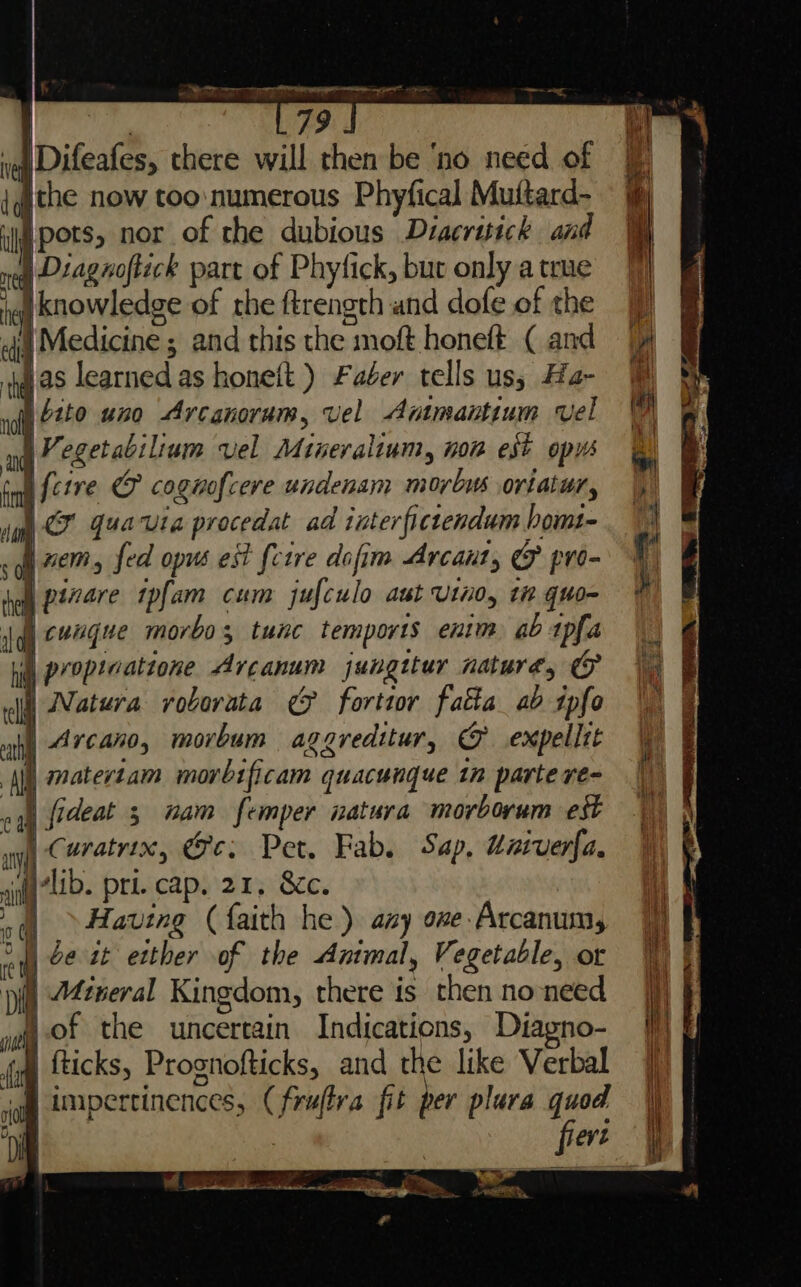 [ 79 ]
Diſeaſes, there will then be no need of
the now too numerous Phyſical Muſtard-
pots, nor of the dubious Diacritick and
Diagnoſtick part of Phyſick, but only a true
knowledge of the ſtrength and doſe of the
Medicine; and this the moſt honeſt ( and
as learned as honeſt ) Faber tells us, Ha-
bito uno Arcanorum, vel Animantium vel
Vegetabilium vel Mineralium, non eſt opus
ſcire & cognoſcere undenam morbus oriatur,
& qua via procedat ad interficiendum homi-
nem, ſed opus eſt ſcire doſim Arcani, & pro-
pinare ipſam cum juſculo aut vino, in quo-
cunque morbo; tunc temporis enim ab ipſa
propinatione Arcanum jungitur naturæ, &
Natura roborata & fortior facta ab ipſo
Arcano, morbum aggreditur, & expellit
materiam morbificam quacunque in parte re-
ſideat ; nam ſemper natura morborum eſt
Curatrix, &c. Pet. Fab. Sap. Univerſa.
lib. pri. cap. 21. &c.
Having (faith he) any one Arcanum,
be it either of the Animal, Vegetable, or
Mineral Kingdom, there is then no need
of the uncertain Indications, Diagno-
ſticks, Prognoſticks, and the like Verbal
impertinences, (fruſtra fit per plura quod
fieri